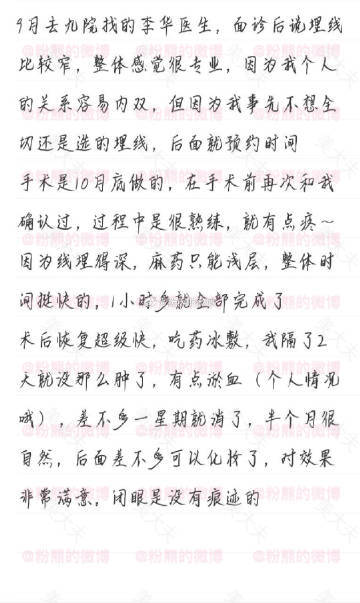 9月去九院找的李华医生，面诊后说埋线
比较窄，整体感觉很专业，因为我个人
的关系容易内双，但因为我事先不想全
切还是选的埋线，后面就预约时间
手术是10月底做的，在手术前再次和我
确认过，过程中是很熟练，就有点疼～
因为线埋得深，麻药只能浅层，整体时
间挺快的，1小时多就全部完成了
术后恢复超级快，吃药冰敷，我隔了2
天就没那么肿了，有点淤血（个人情况
哦），差不多一星期就消了，半个月很
自然，后面差不多可以化妆了，对效果
非常满意，闭眼是没有痕迹的
@粉熊的微博